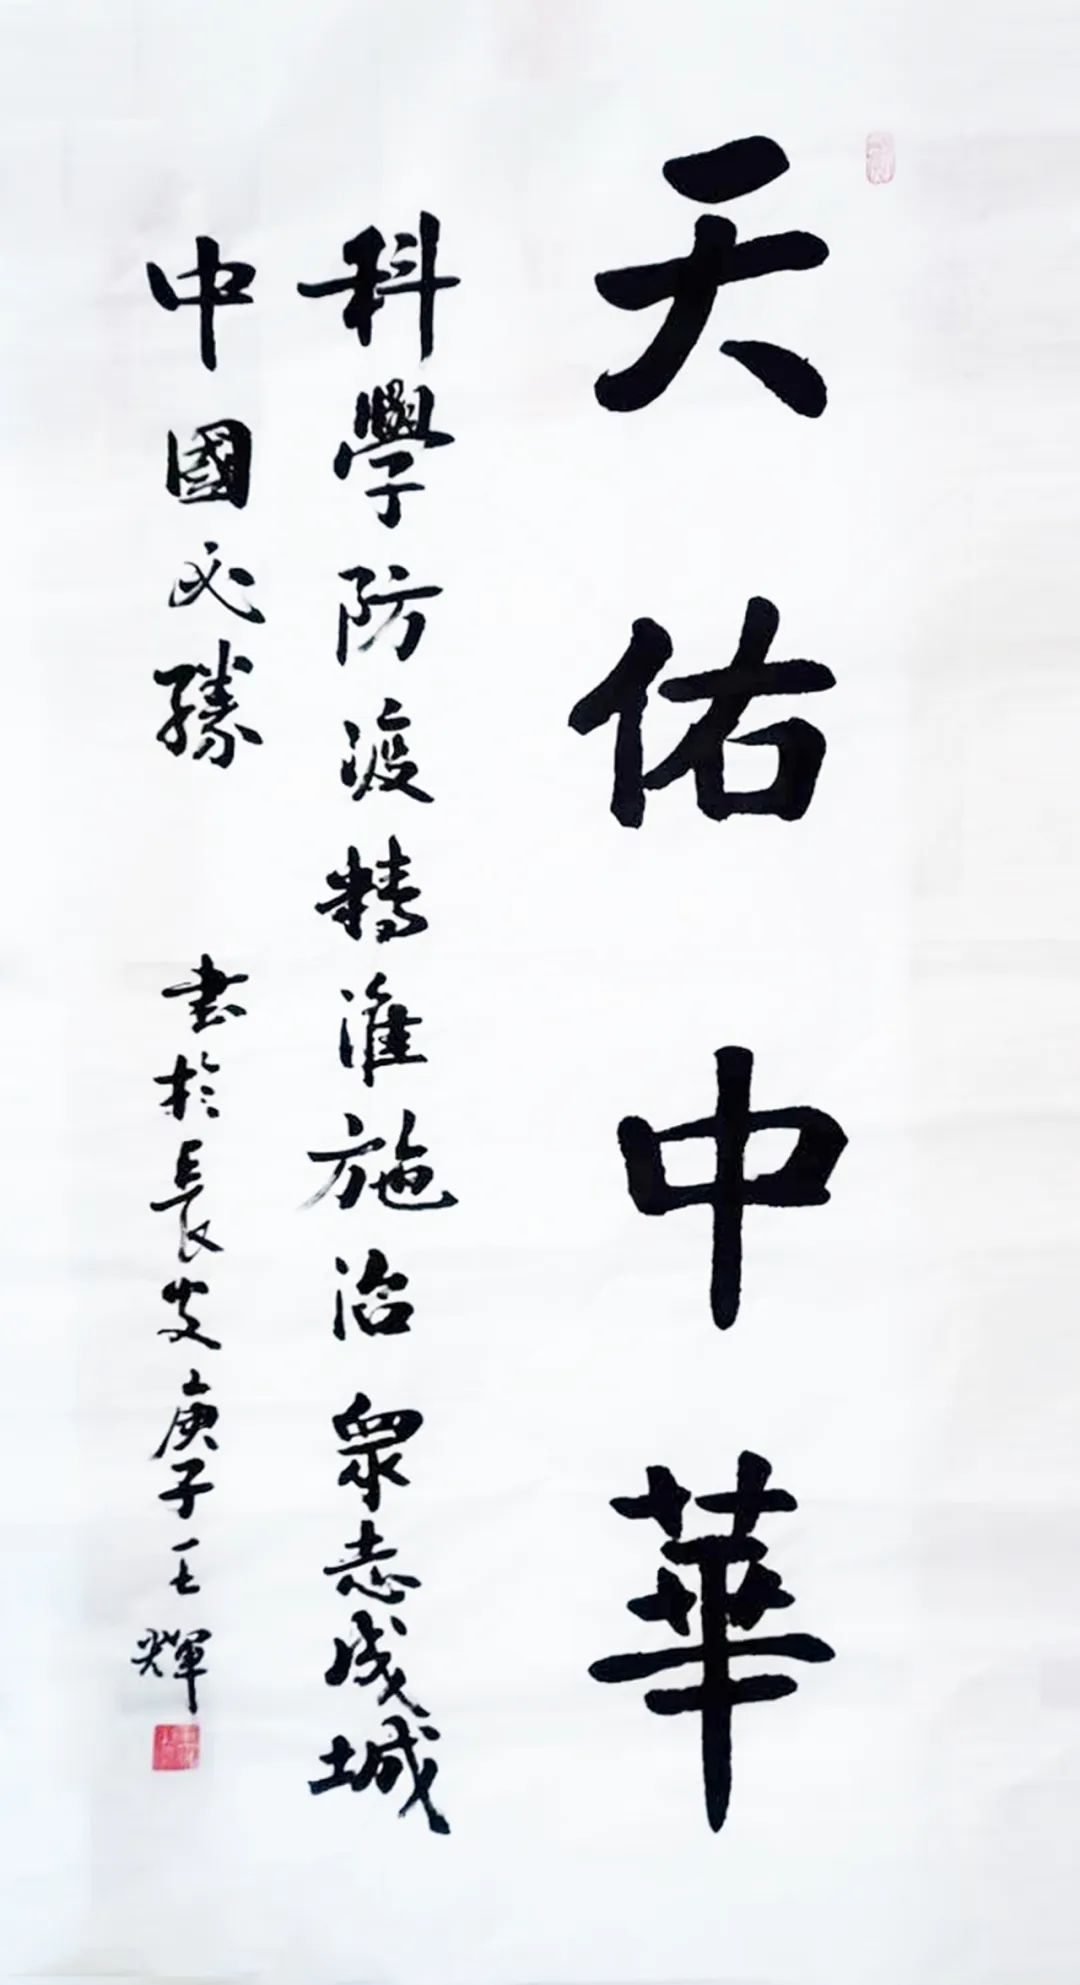 天佑中華
科學防疫精准施治眾志成城
中國必勝 書於長安庚子王輝